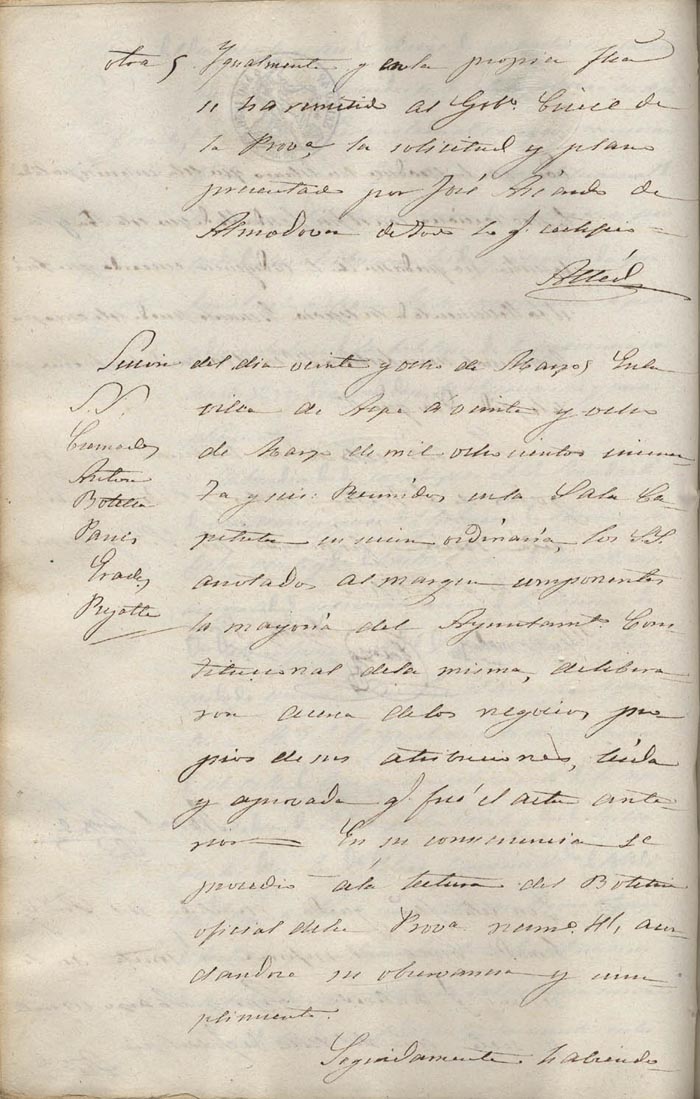 otra, Igualmente y en la propia fha
se ha remitido al Gobº Civil de
la Provª, la solicitud y plano
presentado por José
Almodovar de todo lo q. certifico =
Sesion del dia veinte y ocho de Marzo, En la
villa de Aspe a veinte y ocho
de Marzo de mil ochocientos cincuen-
ta y seis: Reunidos en la Sala Ca-
pitular en sesion ordinaria, los SS.
anotados al margen componentes
la mayoria del Ayuntamtº Cons
titucional de la misma, delibera
ron acerca de los negocios pro
pios de sus atribuciones, leida
y aprovada q. fué el acta ante-
rior = En su consecuencia se
procedió a la lectura del Boletin
oficial de la Provª numº 41, acor
dandose su observancia y cum
plimiento.
Seguidamente habiendo
S.S.
Cremades
Anton
Botella
Pavia
Prades